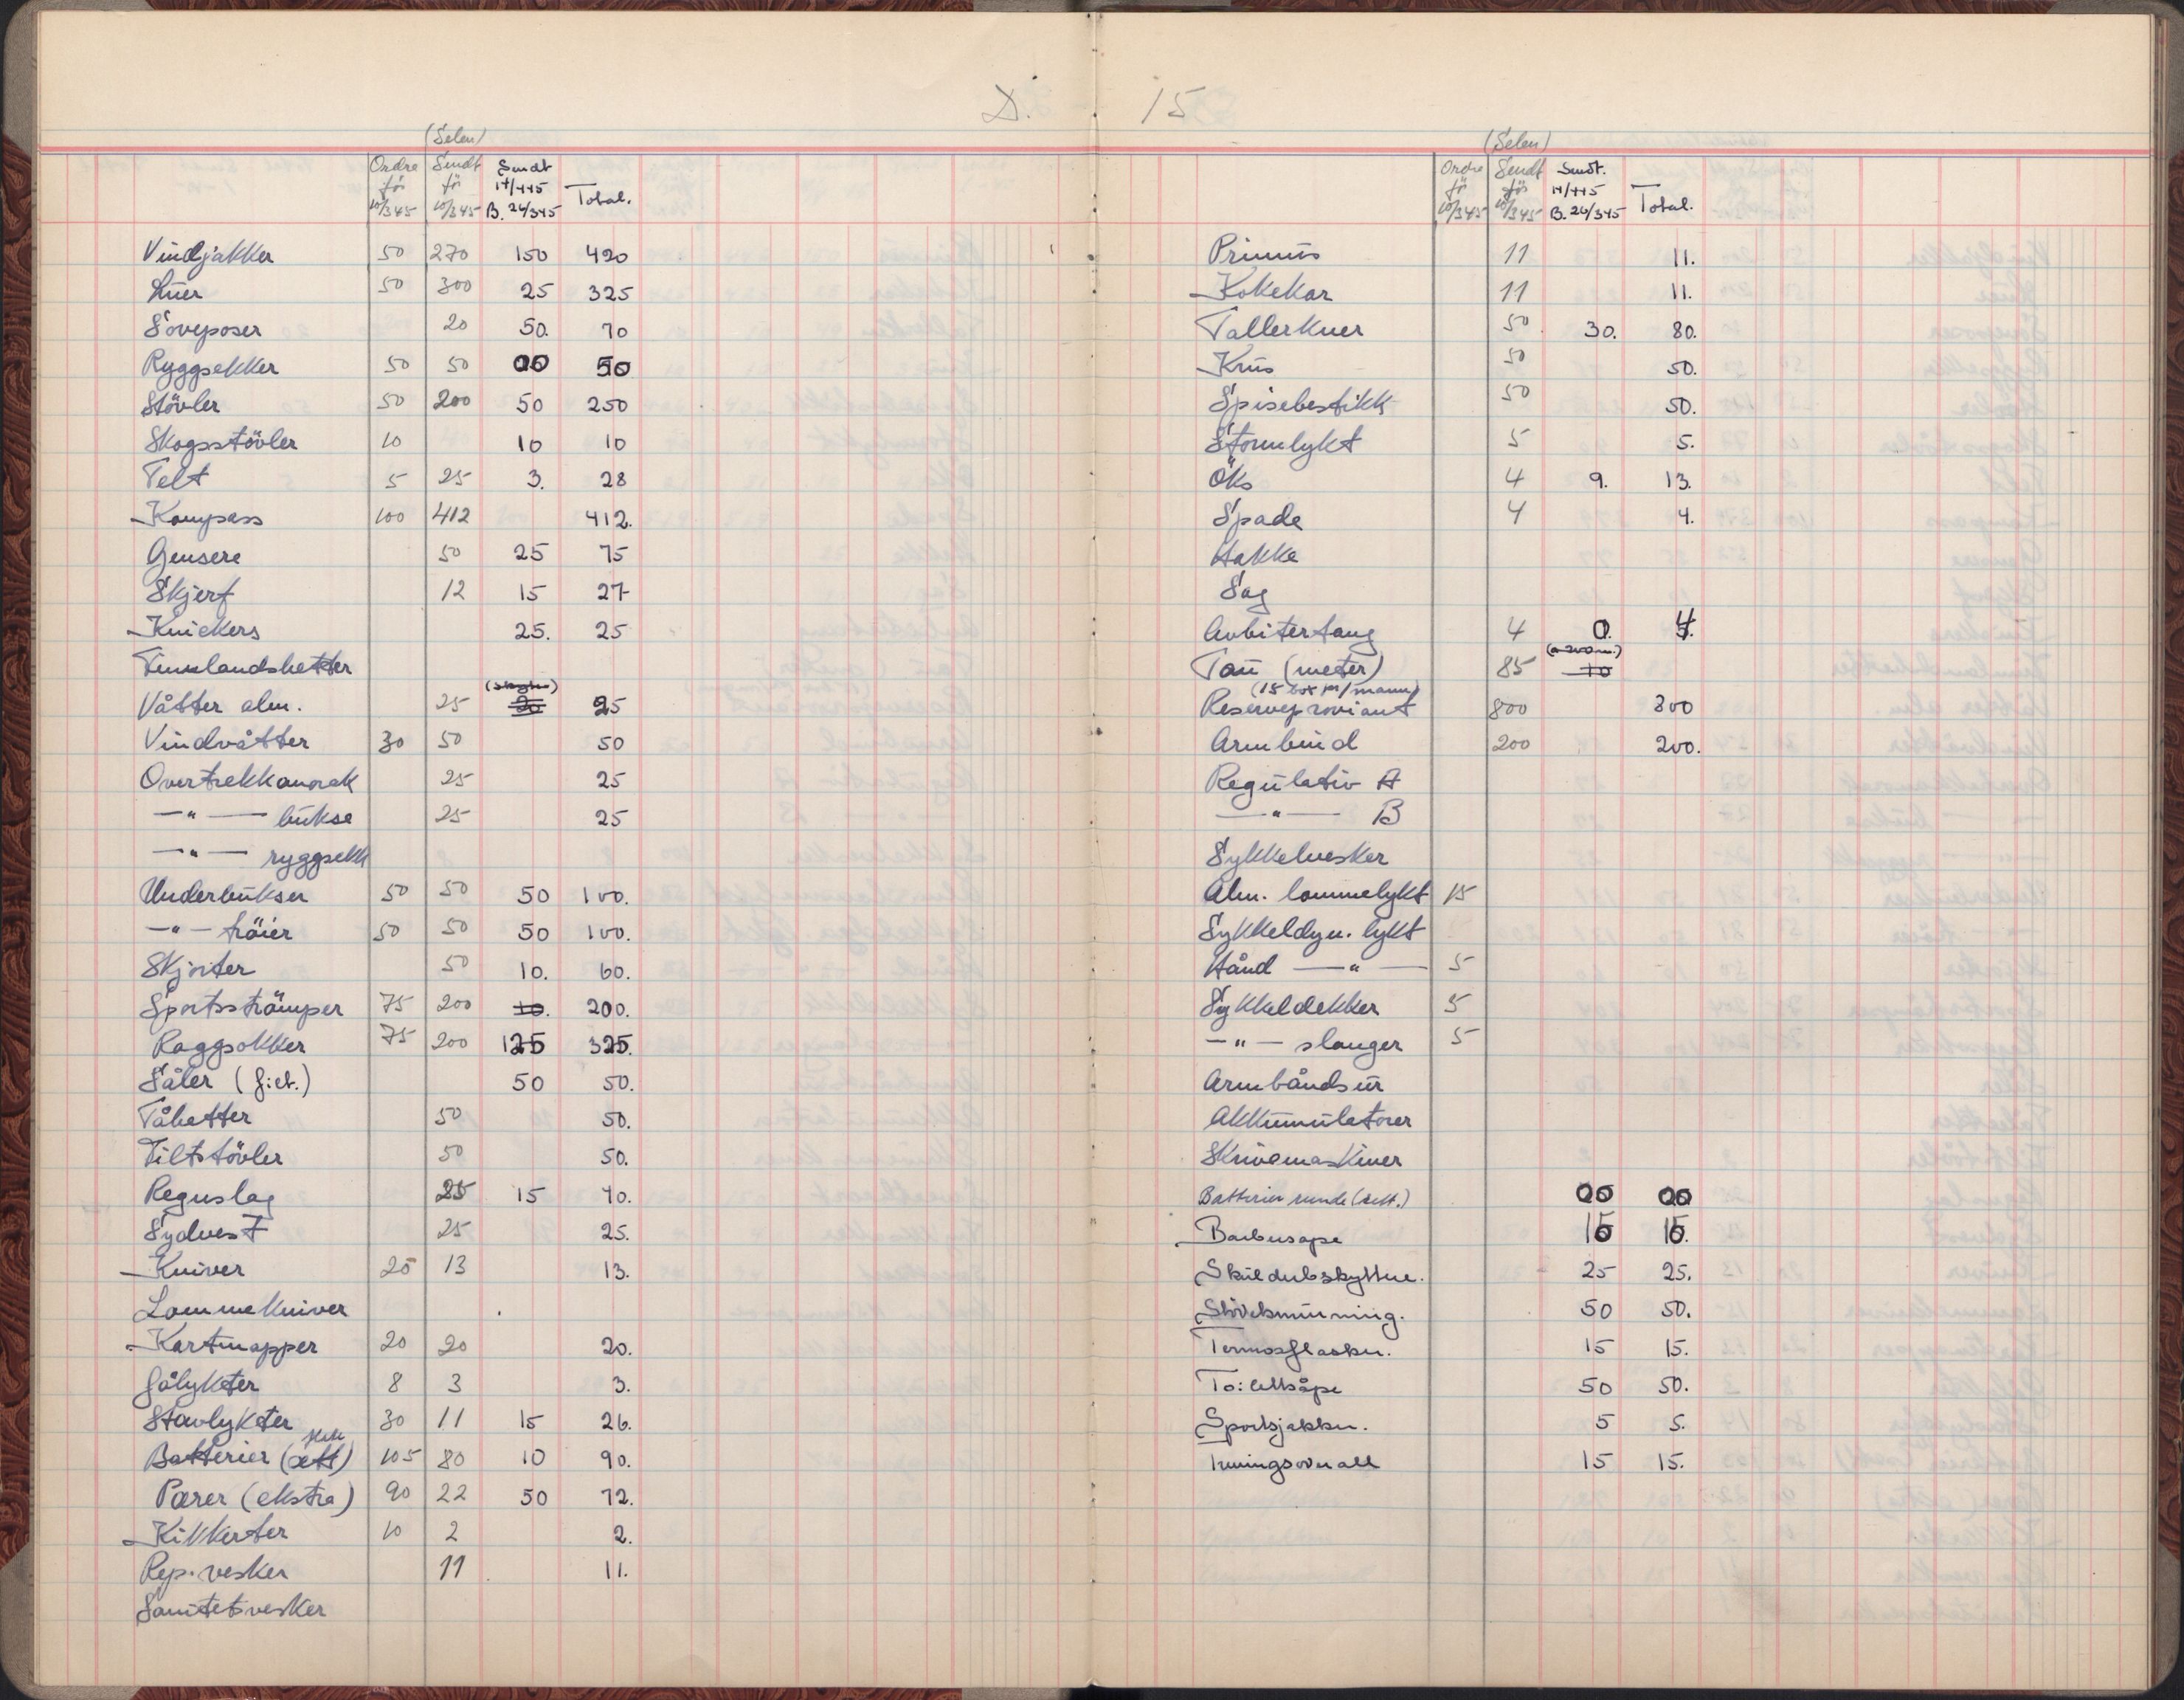 D. 15
(Selen)
Ordre før 10/3 45 Sendt før 10/3 45 Sendt 14/4 45 B. 26/3 45 Total.
Vindjakker 50 270 150 420
Luer 50 300 25 325
Soveposer 20 50. 70
Ryggsekker 50 50 00 50
Stövler 50 200 50 250
Skogsstövler 10 10 10
Telt 5 25 3. 28
Kompass 100 412 412.
Gensere 50 25 75
Skjerf 12 15 27
Knickers 25. 25
Våtter alm. 25 20 25
Vindvåtter 30 50 50
Overtrekkanorak 25 25
—"— bukse 25 25
—"— ryggsekk
Underbukser 50 50 50 100.
—"— tröier 50 50 50 100.
Skjorter 50 10. 60.
Sportsströmper 75 200 10. 200.
Raggsokker 75 200 125 325.
Såler (filt.) 50 50.
Tåhetter 50 50.
Filtstövler 50 50.
Regnslag 25 15 40.
Sydvest 25 25.
Kniver 25 13 13.
Lommekniver
Kartmapper 20 20 20.
Hålykter 8 3 3.
Stavlykter 30 11 15 26.
Batterier (sett) stk 105 80 10 90.
Pærer (ekstra) 90 22 50 72.
Kikkerter 10 2 2.
Rep. vesker 11 11.
Sanitetsvesker
(Selen)
Ordre før 10/3 45 Sendt før 10/3 45 Sendt. 14/4 45 B. 26/3 45 Total.
Primus 11 11.
Kokekar 11 11.
Tallerkner 50 30. 80.
Krus 50 50.
Spisebestikk 50 50.
Stormlykt 5 5.
Öks 4 9. 13.
Spade 4 4.
Hakke
Sag
Avbitertang 4 0. 4.
Tau (meter) 85 10
Reserveproviant 800 800
Armbind 200 200.
Regulativ A
—"— B
Sykkelvesker
Alm. lommelykt 15
Sykkeldyn. lykt
Hånd —"— 5
Sykkeldekker 5
—"— slanger 5
Armbåndsur
Akkumulatorer
Skrivemaskiner
Batterier runde (sett.) 00 00
Barbersåpe 15 15.
25 25.
50 50.
Termosflasker. 15 15.
Toilettsåpe 50 50.
Sportsjakker. 5 5.
Treningsoverall 15 15.